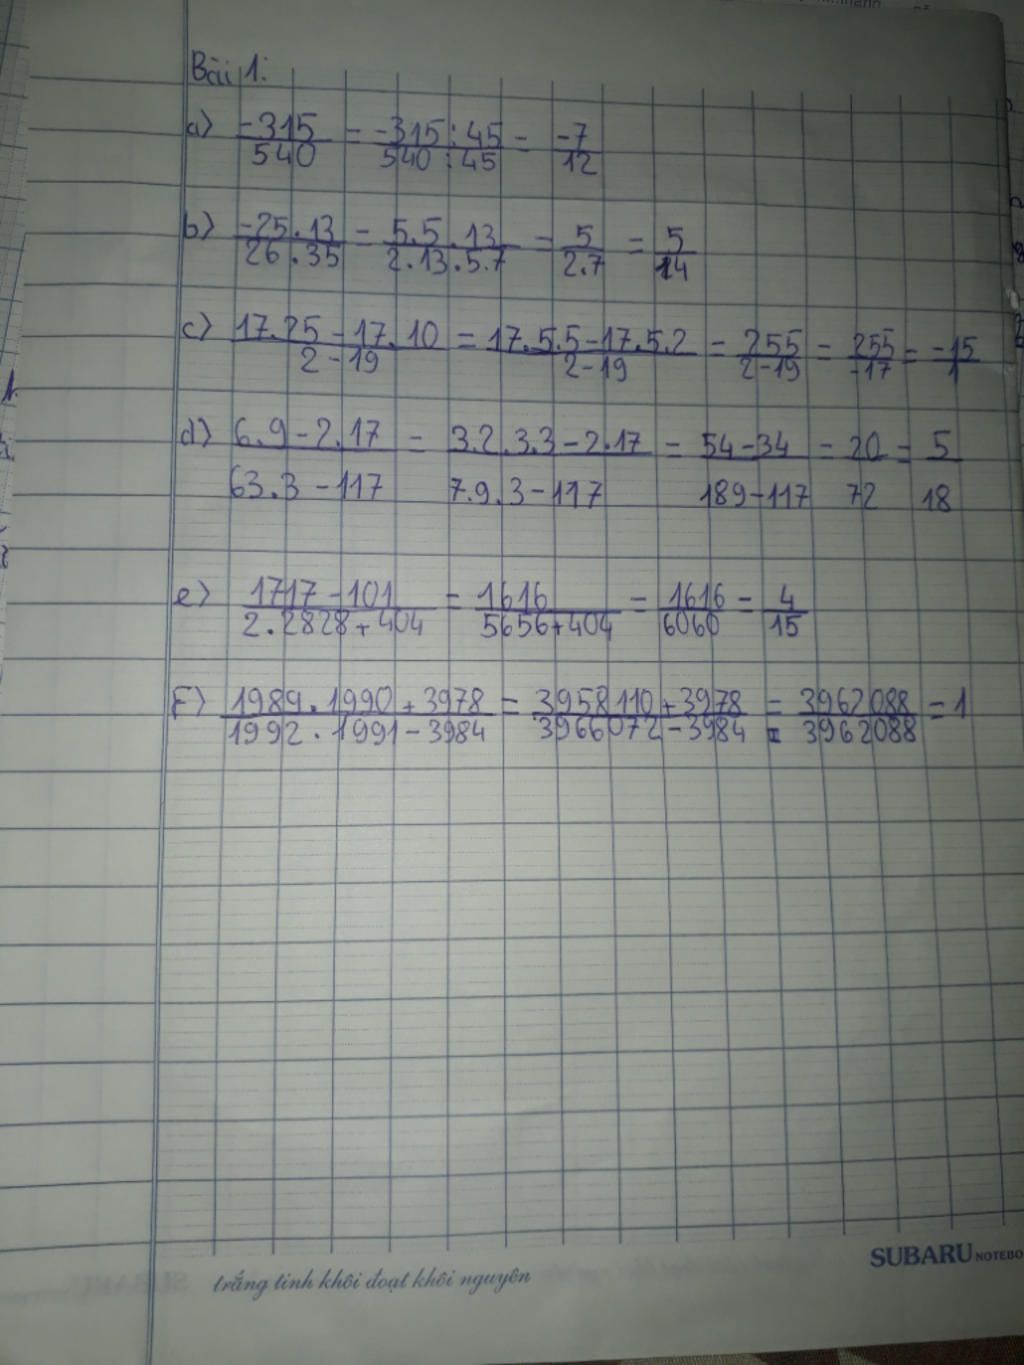 Bài 1:
a) -315/540 = -315:45/540:45 = -7/12
b) -25.13/26.35 = 5.5.13/2.13.5.7 = 5/2.7 = 5/14
c) 17.25-17.10/2-19 = 17.5.5-17.5.2/2-19 = 255/2-19 = 255/-17 = -15/1
d) 6.9-2.17/63.3-117 = 3.2.3.3-2.17/7.9.3-117 = 54-34/189-117 = 20/72 = 5/18
e) 1717-101/2.2828+404 = 1616/5656+404 = 1616/6060 = 4/15
F) 1989.1990+3978/1992.1991-3984 = 3958110+3978/3966072-3984 = 3962088/3962088 = 1
SUBARU NOTEBO
trắng tinh khôi đoạt khôi nguyên